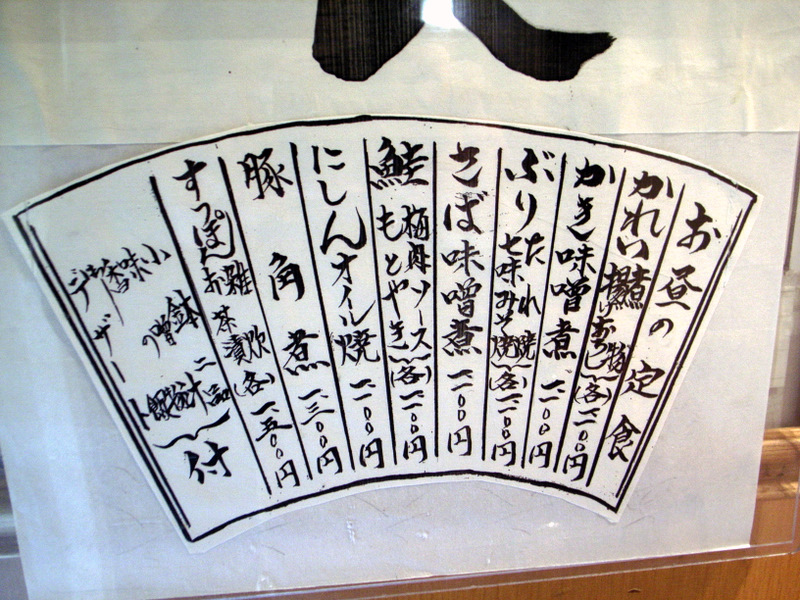 お昼の定食
かれい煮 揚げおろし (各) 一二〇〇円
かき味噌煮 一二〇〇円
ぶり たれ焼 七味みそ焼 (各) 一一〇〇円
さば味噌煮 一一〇〇円
鮭 もとやき (各) 一一〇〇円
にしんオイル焼 一一〇〇円
豚角煮 一三〇〇円
すっぽん 雑炊 お茶漬 (各) 一五〇〇円
小鉢二品
味噌汁
香の物
御飯
デザート
付